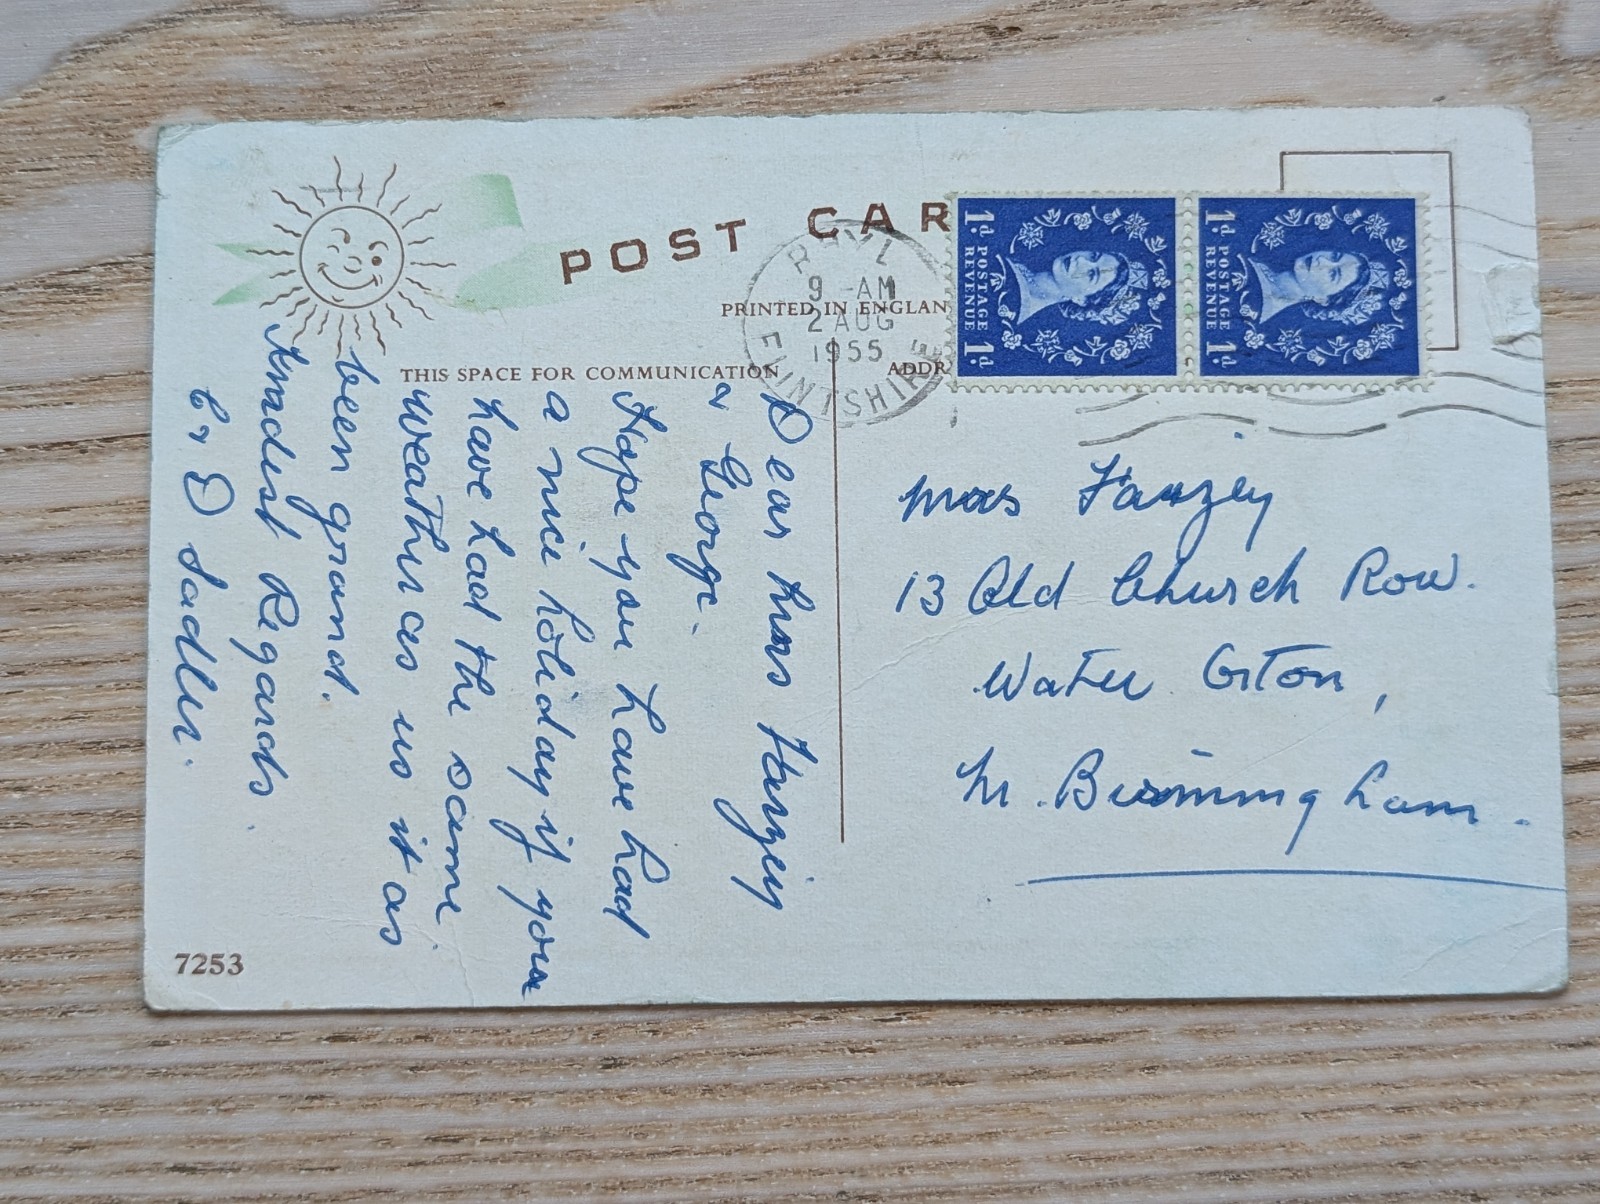 POST CAR
PRINTED IN ENGLAN
THIS SPACE FOR COMMUNICATION
ADDR
RHYL
9 - AM
2 AUG
1955
FLINTSHIRE
1d POSTAGE REVENUE 1d
1d POSTAGE REVENUE 1d
Dear Mrs Harzey
& George.
Hope you have had
a nice holiday if you
have had the same
weather as us it as
been grand.
Kindest Regards
C & D Sadler.
Mrs Harzey
13 Old Church Row.
Water Orton,
Nr. Birmingham.
7253